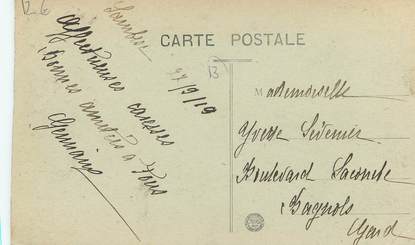 12-6
CARTE POSTALE
13
27/9/19
affectueuses caresses
Bonnes amitiés à tous
Germaine
Mademoiselle
Yvette
Boulevard Lacombe
Bagnols
Gard